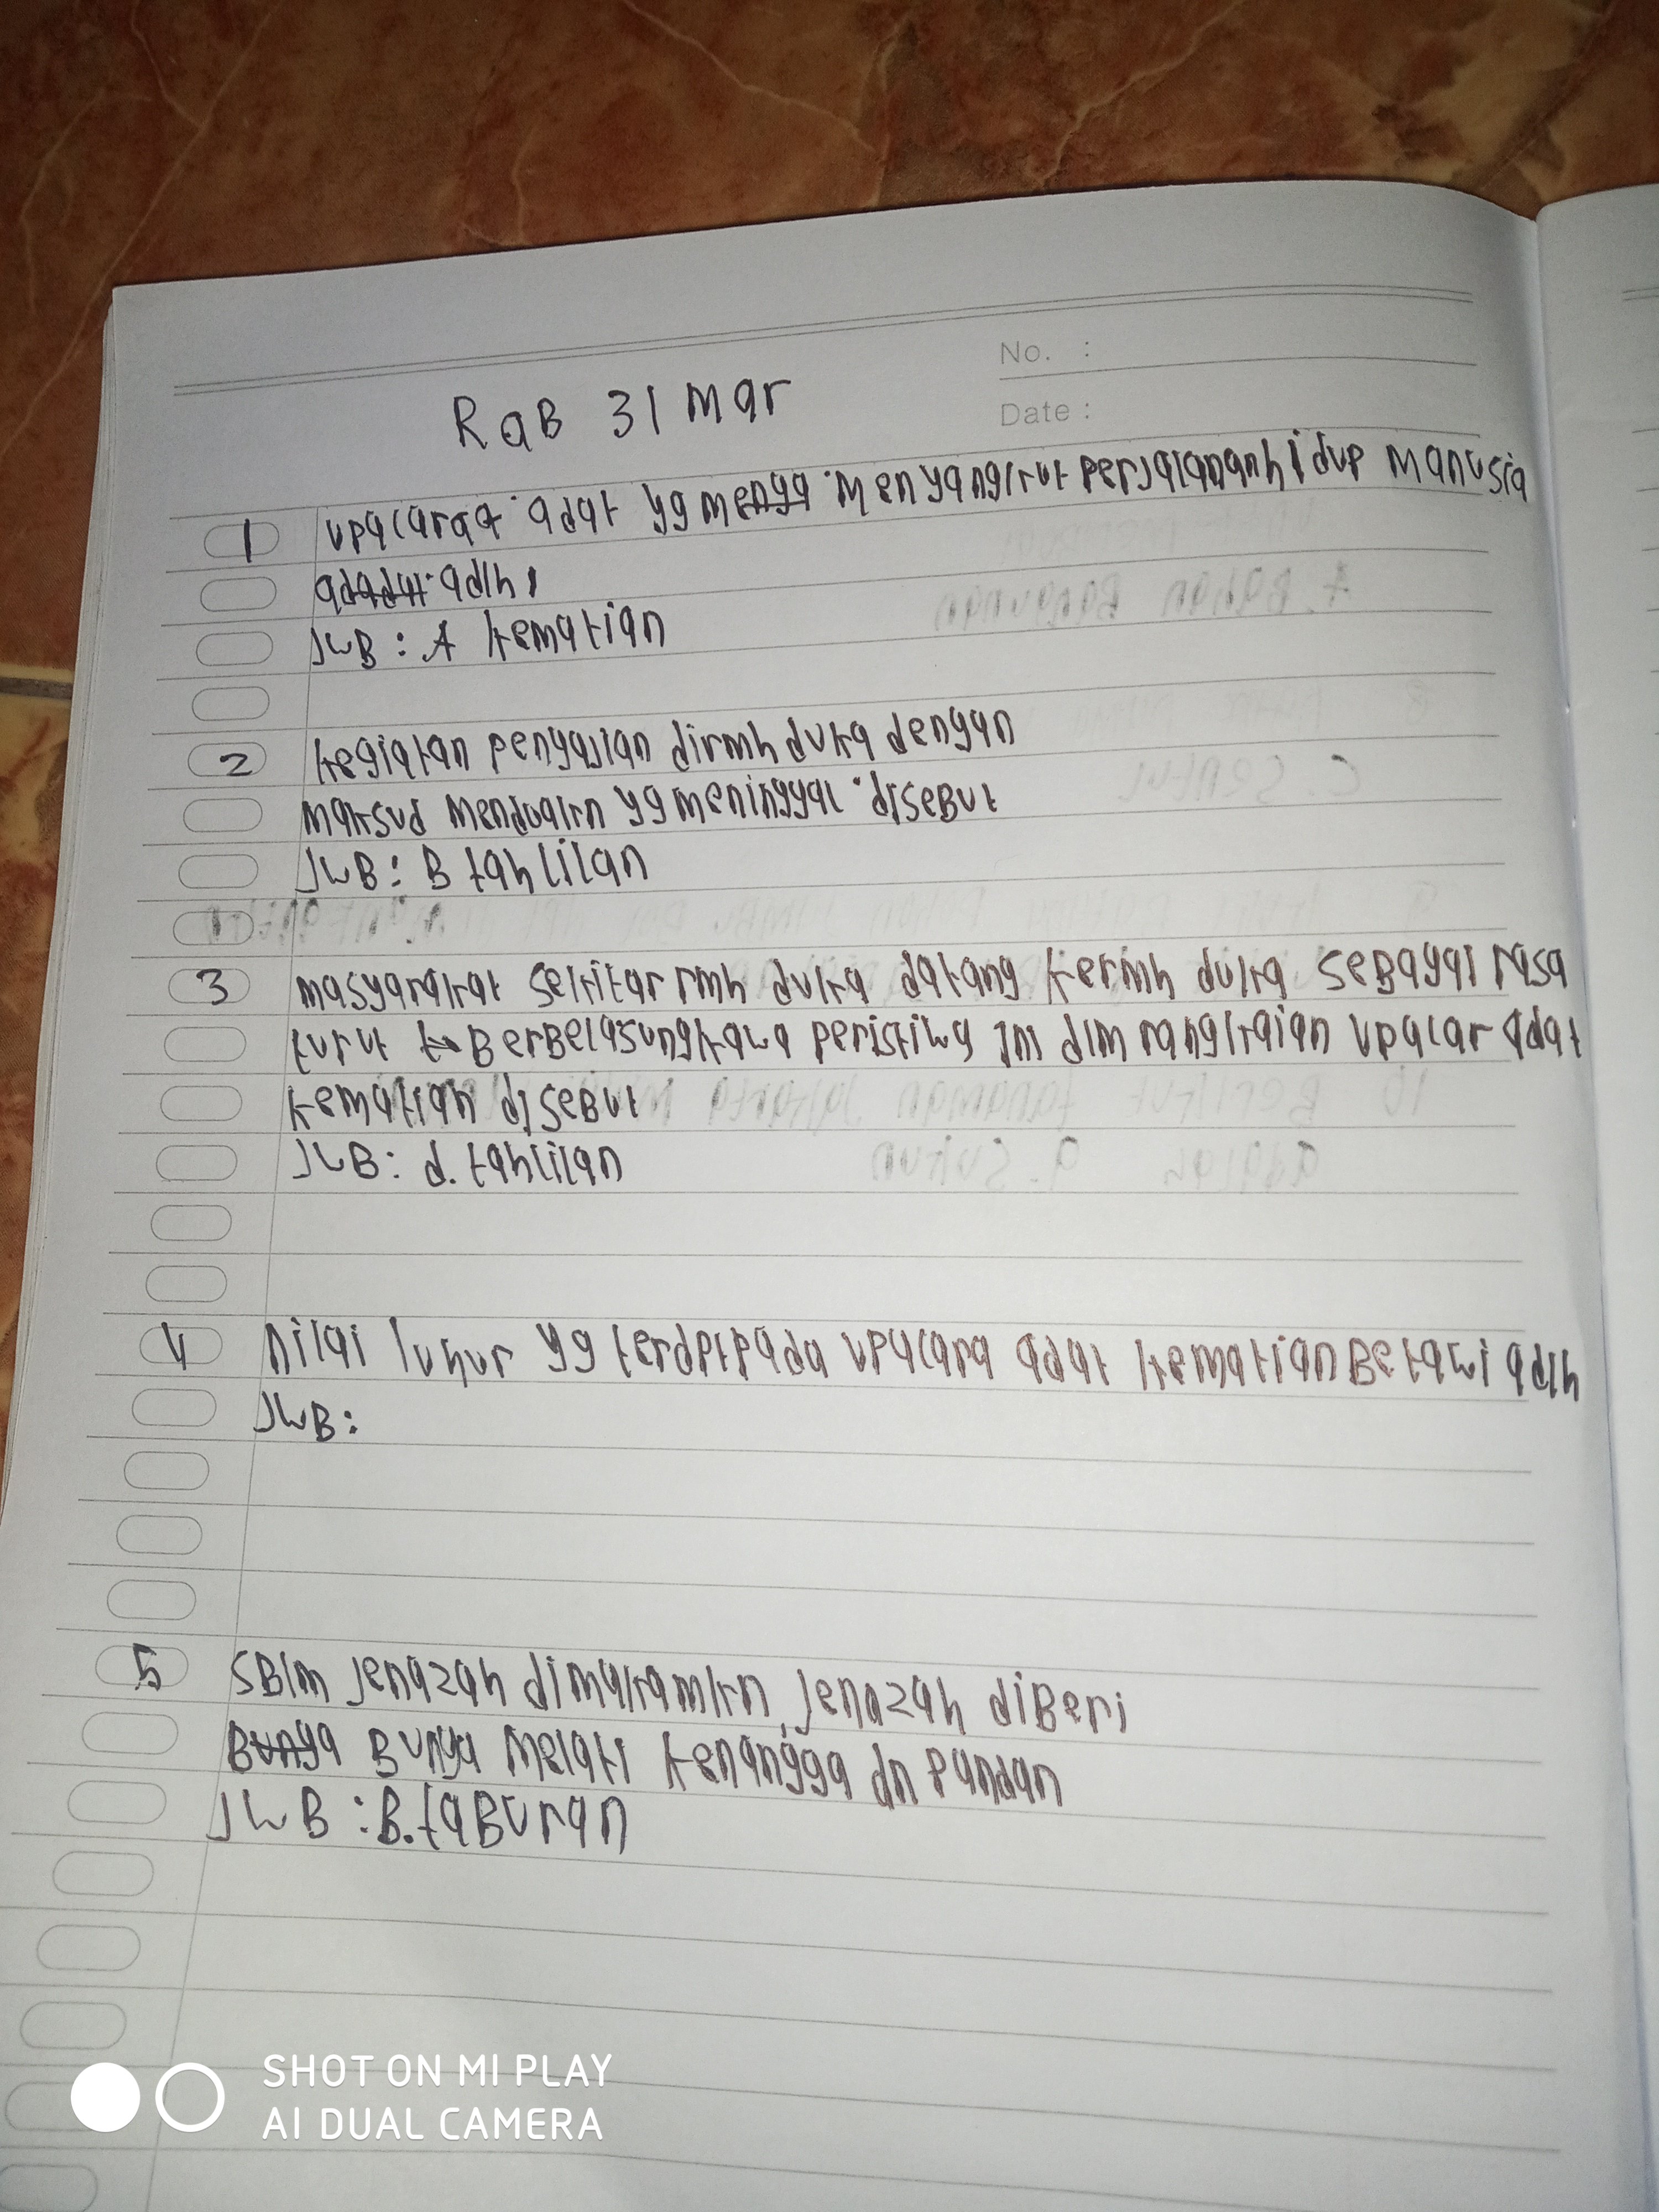 No. :
Date :
RaB 31 Mar
1 upacaraa adat yg menga menyangkut perjalananhidup manusia
adadat adlh,
JWB : A kematian
2 kegiatan pengajian dirmh duka dengan
maksud mendoakn yg meninggal disebut
JWB : B tahlilan
3 masyarakat sekitar rmh duka datang kermh duka sebagai rasa
turut Berbelasungkawa peristiwa ini dlm rangkaian upacar adat
kematian disebut
JWB : d. tahlilan
4 nilai luhur yg terdpt pada upacara adat kematian Betawi adlh
JWB :
5 SBlm jenazah dimakamkn, jenazah diBeri
Bunga Bunga melati kenangga dn Pandan
JWB : B. taBuran
SHOT ON MI PLAY
AI DUAL CAMERA